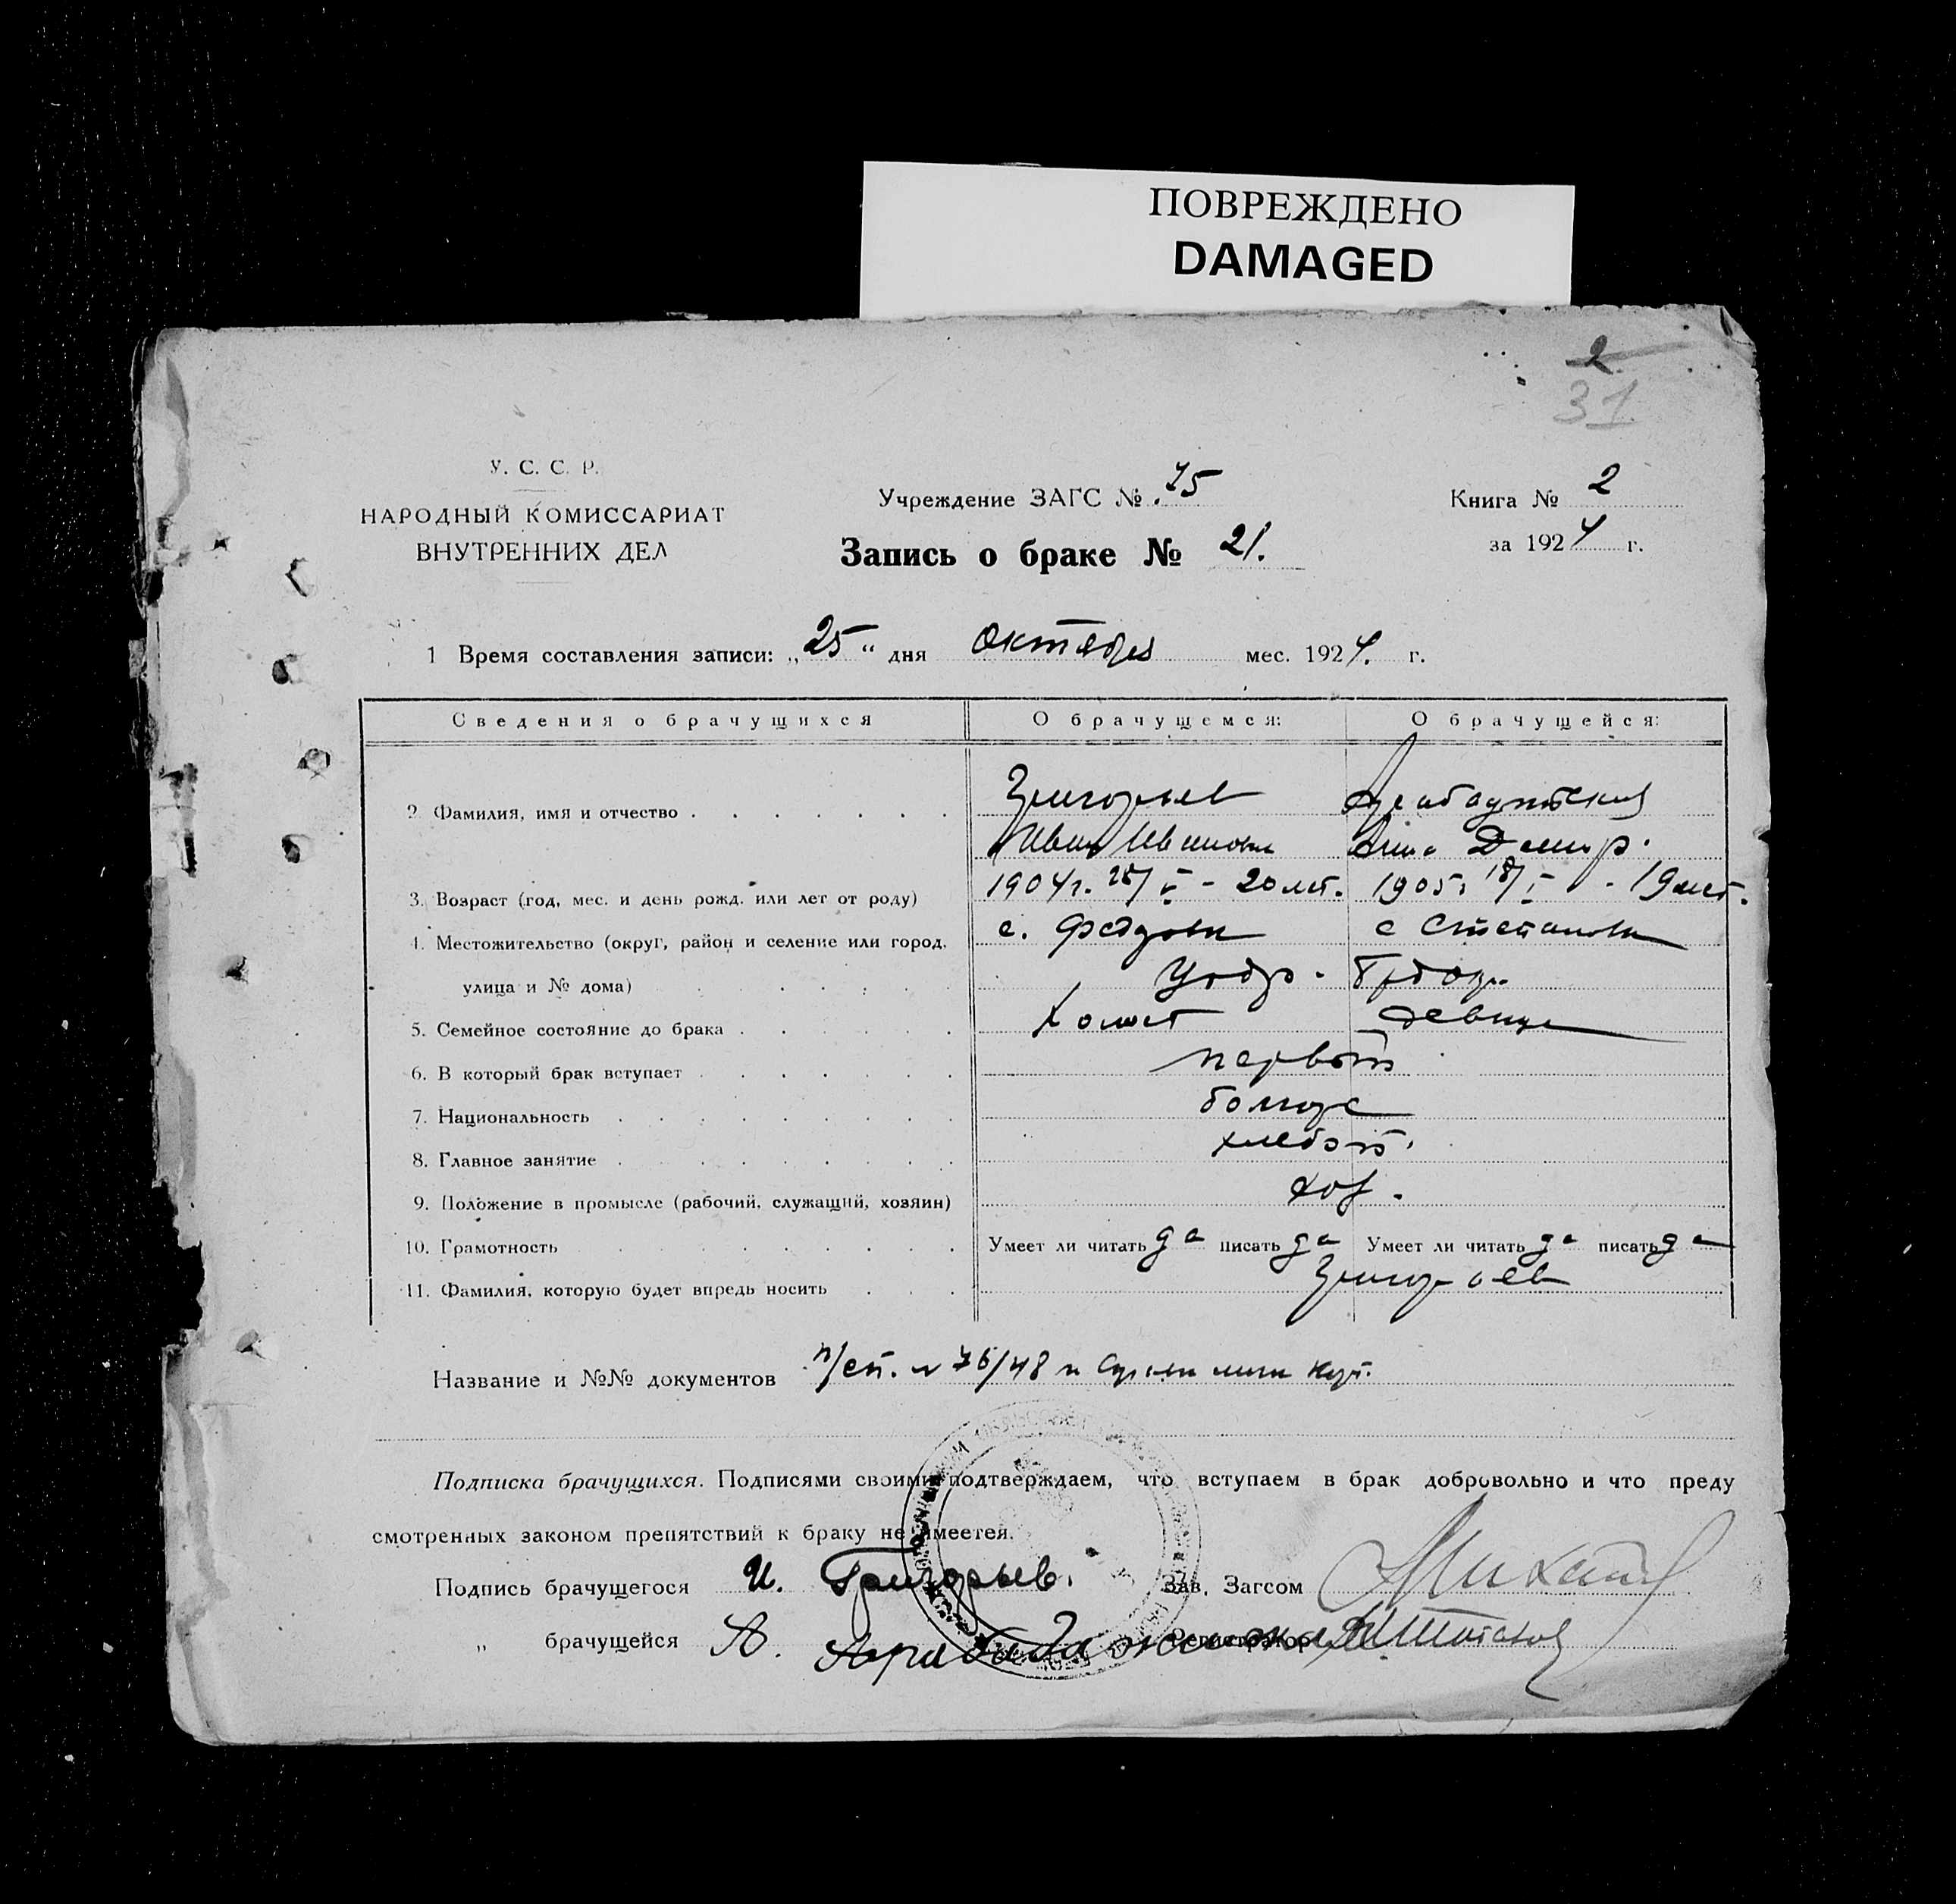 ПОВРЕЖДЕНО
DAMAGED
2
31
У. С. С. Р.
НАРОДНЫЙ КОМИССАРИАТ
ВНУТРЕННИХ ДЕЛ
Учреждение ЗАГС № 75
Запись о браке № 21.
Книга № 2
за 1924 г.
1 Время составления записи: „25“ дня октября мес. 1924. г.
Сведения о брачущихся О брачущемся: О брачущейся:
2. Фамилия, имя и отчество Григорьев
Иван Иванович Анна Дмитр.
3. Возраст (год, мес. и день рожд. или лет от роду) 1904 г. - 20 лет. 1905 г. 18/I - 19 лет.
4. Местожительство (округ, район и селение или город, с. Федоровка с Степановка
улица и № дома)
5. Семейное состояние до брака холост девица
6. В который брак вступает первый
7. Национальность
8. Главное занятие хлебоп.
9. Положение в промысле (рабочий, служащий, хозяин) хоз.
10. Грамотность Умеет ли читать да писать да Умеет ли читать да писать да
11. Фамилия, которую будет впредь носить Григорьев
Название и №№ документов № 76/48
Подписка брачущихся. Подписями своими подтверждаем, что вступаем в брак добровольно и что преду
смотренных законом препятствий к браку не имеется.
Подпись брачущегося И. Григорьев. Зав. Загсом
„ брачущейся А. Регистратор